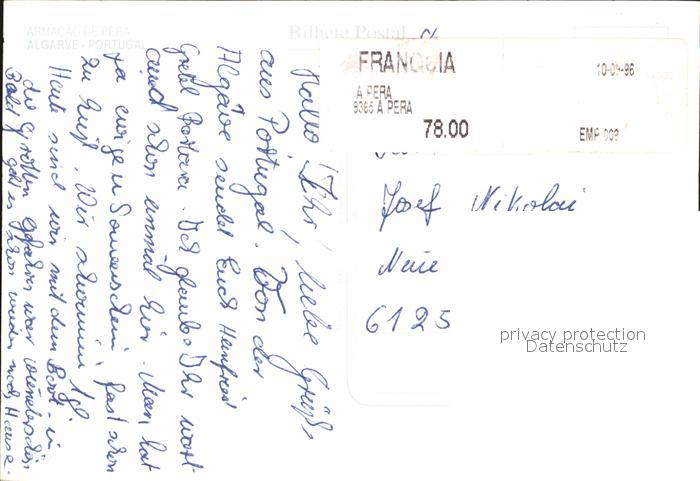 ARMAÇÃO DE PERA
ALGARVE - PORTUGAL
Bilhete Postal
FRANQUIA
10-09-96
A PERA
8365 A PERA
78.00
EMP 003
Josef Nikolai
6125
privacy protection
Datenschutz
Hallo Ihr! Liebe Grüße
aus Portugal. Von der
Algarve sendet Euch Manfred
Gretel Barbara. Ich glaube Ihr wart
auch schon einmal hier. Man hat
ja ewigen Sonnenschein, fast schon
zu heiß. Wir schwimmen
Heute sind wir mit dem Boot in
die Grotten gefahren war wunderschön
Bald geht es schon wieder nach Hause.